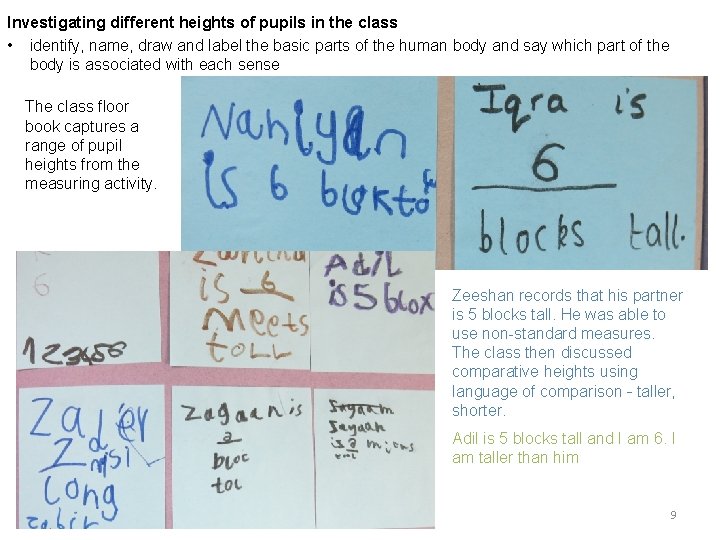 Investigating different heights of pupils in the class
• identify, name, draw and label the basic parts of the human body and say which part of the
body is associated with each sense
The class floor
book captures a
range of pupil
heights from the
measuring activity.
Naniyan
is 6 blokto
Iqra is
6
blocks tall.
6
123456
is 6
meets
toll
Adil
is 5 blox
Zeeshan records that his partner
is 5 blocks tall. He was able to
use non-standard measures.
The class then discussed
comparative heights using
language of comparison - taller,
shorter.
Adil is 5 blocks tall and I am 6. I
am taller than him
Long
Zagaan is
bloc
tol
Sayaam
Sayaan
is
9